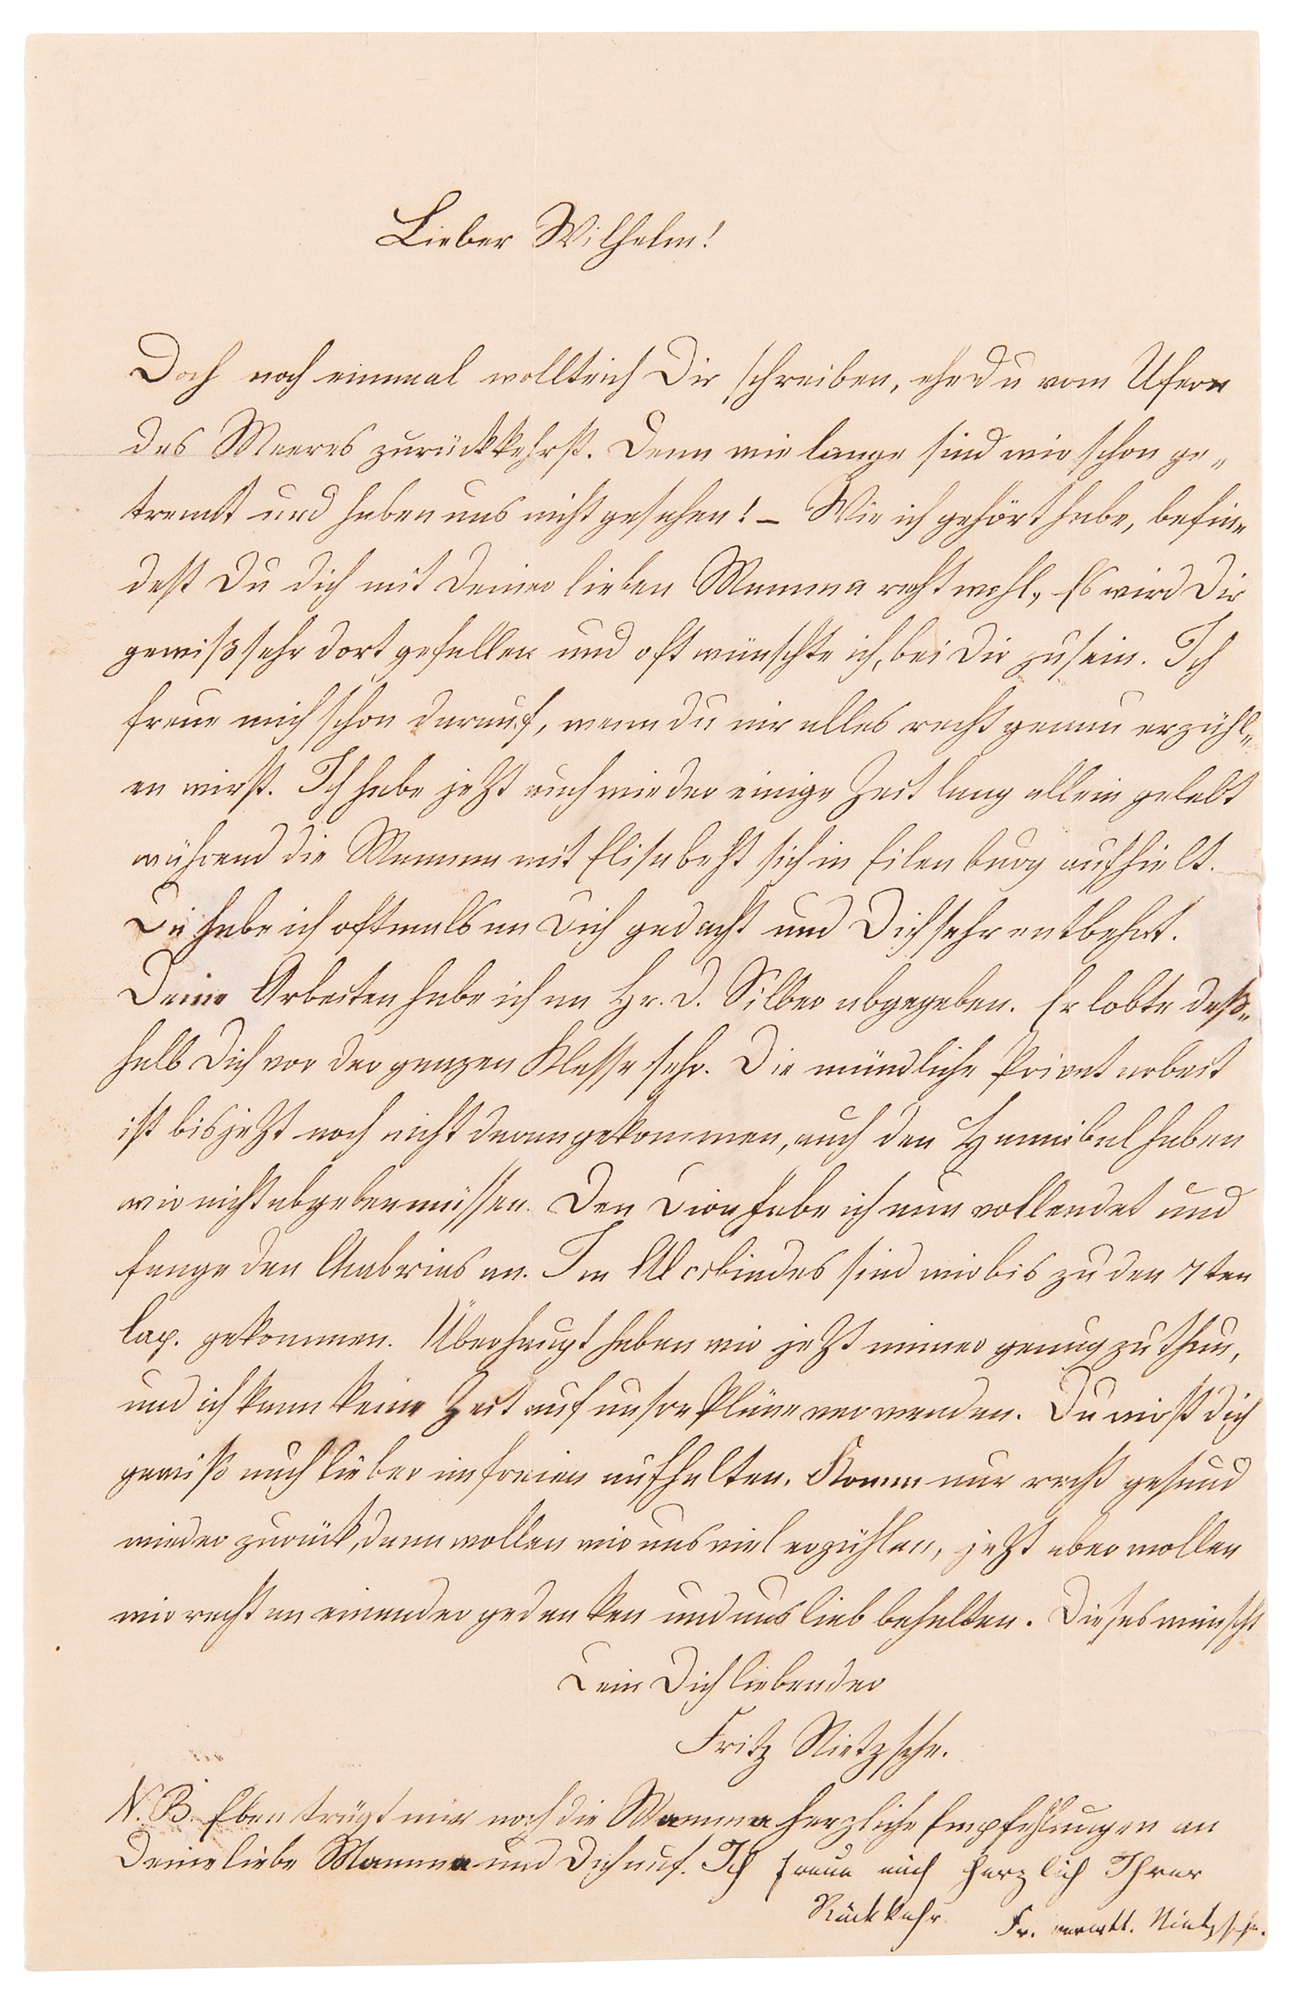 Lieber Wilhelm!
Doch noch einmal wollte ich Dir schreiben, ehe Du vom Ufer
des Meeres zurückkehrst. Denn wie lange sind wir schon ge-
trennt und haben uns nicht gesehen! – Wie ich gehört habe, befin-
dest Du dich mit Deiner lieben Mamma recht wohl, Es wird Dir
gewiß sehr dort gefallen und oft wünschte ich, bei Dir zu sein. Ich
freue mich schon darauf, wenn du mir alles recht genau erzähl-
en wirst. Ich habe jetzt auch wieder einige Zeit lang allein gelebt
während die Mamma mit Elisabeth sich in Eilenburg aufhielt.
Da habe ich oftmals an Dich gedacht und Dich sehr entbehrt.
Deine Arbeiten habe ich an Hr. D. Silber abgegeben. Er lobte deß-
halb Dich vor der ganzen Klasse sehr. Die mündliche Privatarbeit
ist bis jetzt noch nicht daran gekommen, auch den Hannibal haben
wir nicht abgeben müssen. Den Dion habe ich nun vollendet und
fange den Chabrias an. Im Alcibiades sind wir bis zu den 7ten
Cap. gekommen. Überhaupt haben wir jetzt immer genug zu thun,
und ich kann keine Zeit auf unsre Pläne verwenden. Du wirst dich
gewiß auch lieber im freien aufhalten. Komm nur recht gesund
wieder zurück, dann wollen wir uns viel erzählen, jetzt aber wollen
wir recht an einander gedenken und uns lieb behalten. Dieses wünscht
Dein Dich liebender
Fritz Nietzsche.
N. B. Eben trägt mir noch die Mamma herzliche Empfehlungen an
Deine liebe Mamma und Dich auf. Ich freue mich herzlich Ihrer
Rückkehr Fr. verwtt. Nietzsche.